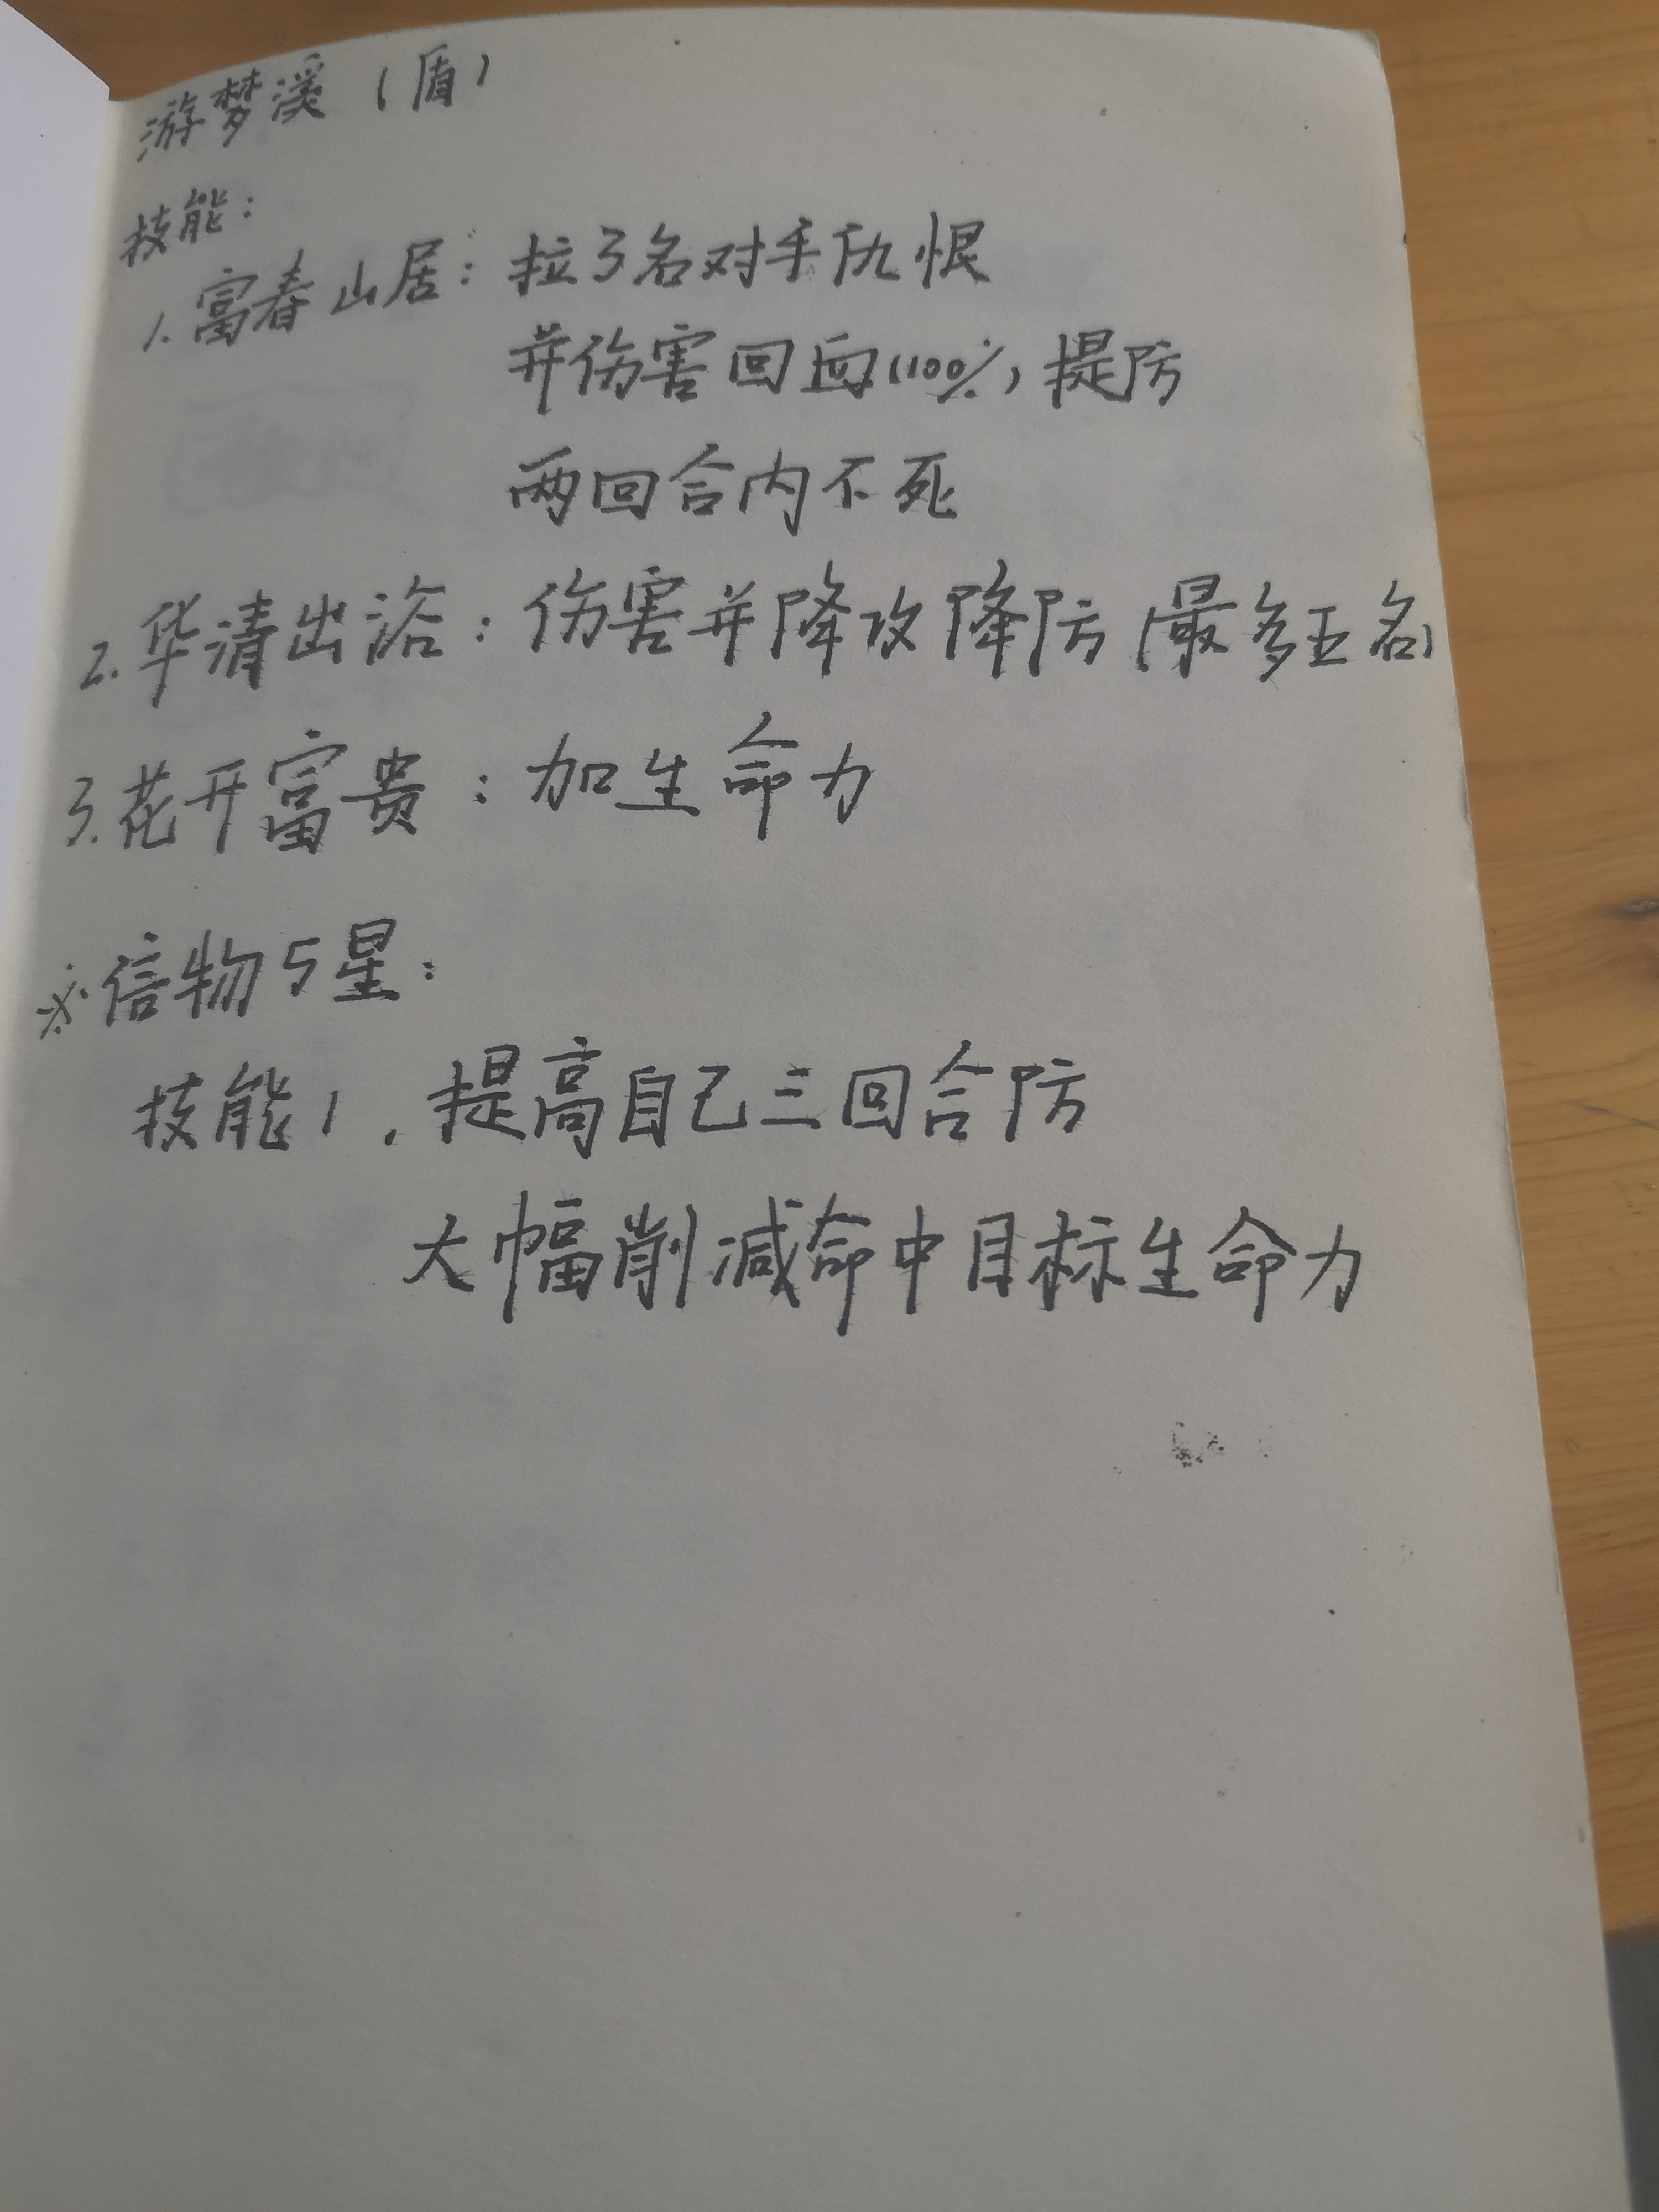 游梦溪（盾）
技能：
1.富春山居：拉3名对手仇恨
并伤害回血(100%)提防
两回合内不死
2.华清出浴：伤害并降攻降防(最多五名)
3.花开富贵：加生命力
※信物5星：
技能1.提高自己三回合防
大幅削减命中目标生命力